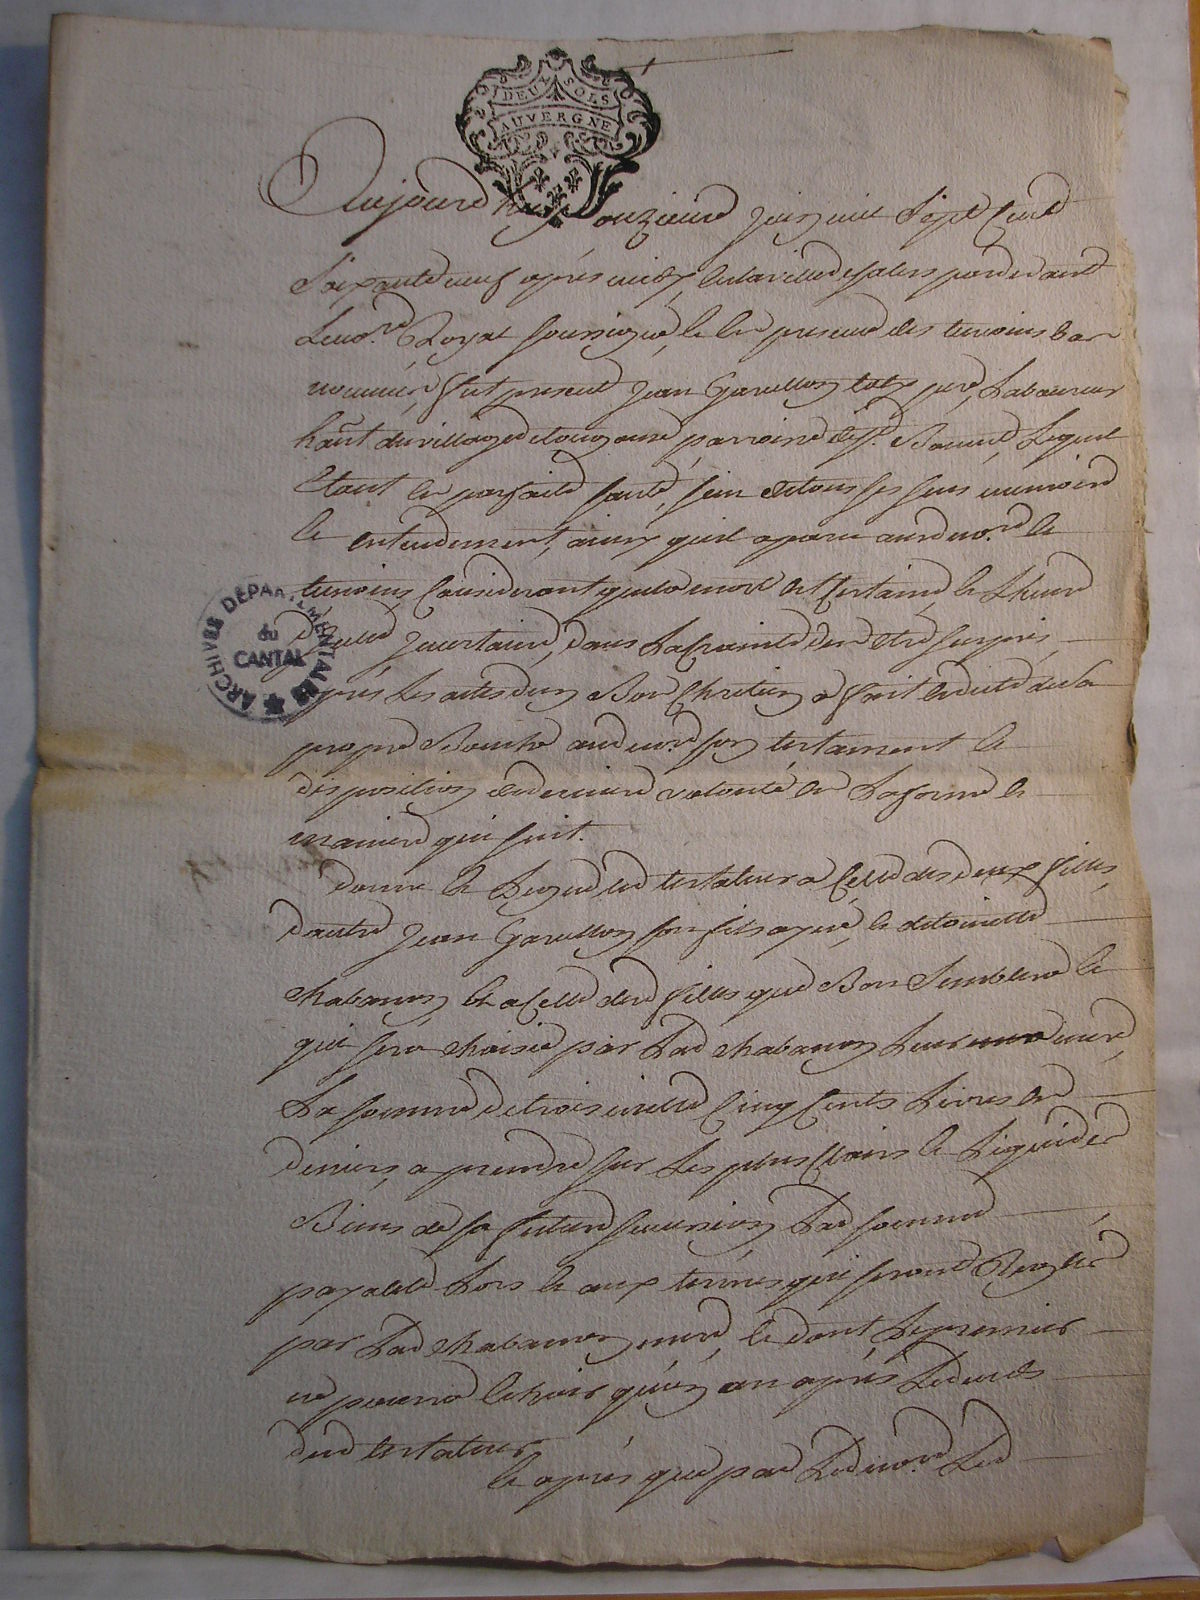 DEUX SOLS
AUVERGNE
Aujourd huy onzieme juin mil sept cent
soixante neuf après midy, en la ville de salers par devant
le no.re Royal soussigné, et en presence des temoins bas
nommés, fut present jean Garellon père, Laboureur
hant du village de parroisse de s.t Bonnet, Lequel
Etant en parfaite santé, sain de tous ses sens memoire
et entendement, ainsy quil apparu aud no.re et
temoins, Considerant que la mort est Certaine, et L'heure
d'icelle incertaine, dans La crainte d'en etre surpris,
après Les actes d'un Bon Chretien a fait et dicté de sa
propre Bouche aud no.re son testament et
disposition de derniere volonté en La forme et
maniere qui suit.
donne et Legue led testateur a Celle des deux filles
d'autre jean Garellon son fils ayné, et de toinette
chabanon et a Celle desd filles que Bon Semblera et
qui sera choisie par Lad chabanon Leur mere,
La somme de trois mille Cinq Cents Livres en
deniers, a prendre sur Les plus Clairs et Liquides
Biens de sa future succession Lad somme
payable Lors et aux termes qui seront Reglés
par Lad chabanon mere, et dont Le premier
ne pourra Echoir qu'un an après Le deces
dud testateur
et après que par Led no.re Led
ARCHIVES DÉPARTEMENTALES
du
CANTAL